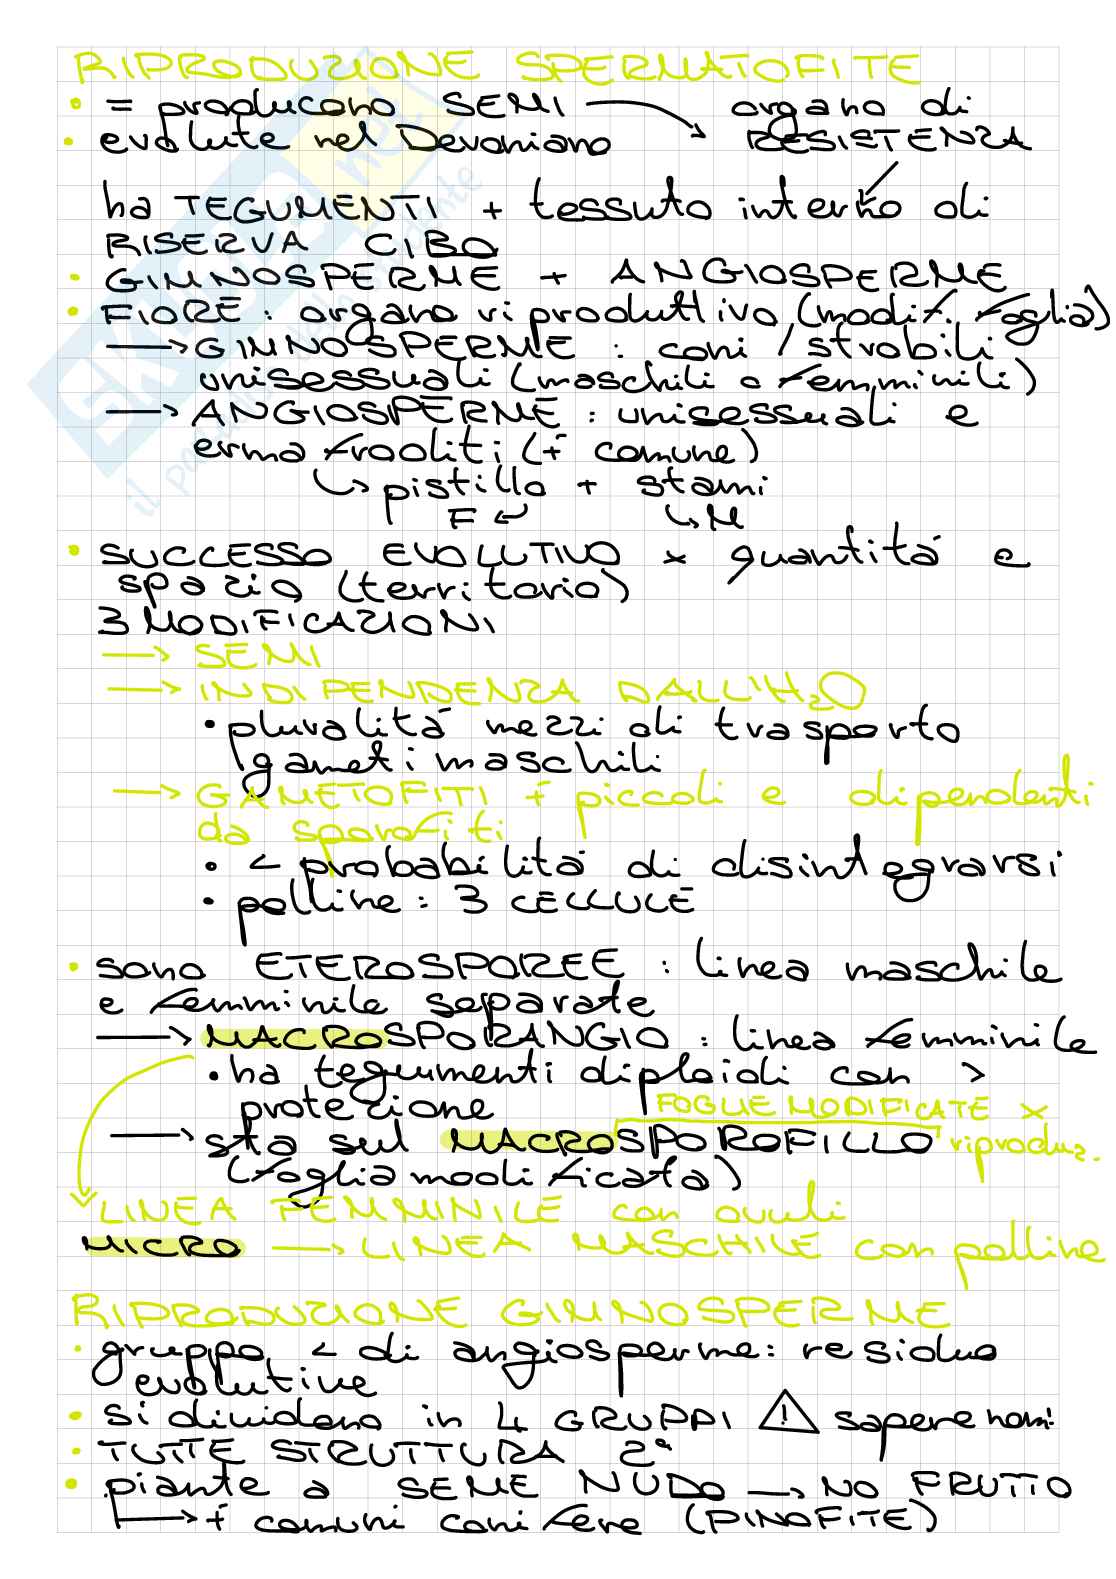 RIPRODUZIONE SPERMATOFITE
• = producono SEMI → organo di
• evolute nel Devoniano RESISTENZA
ha TEGUMENTI + tessuto interno di
RISERVA CIBO
• GIMNOSPERME + ANGIOSPERME
• FIORE : organo riproduttivo (modif. foglia)
→ GIMNOSPERME : coni / strobili
unisessuali (maschili o femminili)
→ ANGIOSPERME : unisessuali e
ermafroditi (+ comune)
↳ pistillo + stami
F ↵ ↳ M
• SUCCESSO EVOLUTIVO x quantità e
spazio (territorio)
3 MODIFICAZIONI
→ SEMI
→ INDIPENDENZA DALL'H₂O
• pluralità mezzi di trasporto
gameti maschili
→ GAMETOFITI + piccoli e dipendenti
da sporofiti
• < probabilità di disintegrarsi
• polline : 3 CELLULE
• sono ETEROSPOREE : linea maschile
e femminile separate
→ MACROSPORANGIO : linea femminile
• ha tegumenti diploidi con >
protezione FOGLIE MODIFICATE x
→ sta sul MACROSPOROFILLO riproduz.
(foglia modificata)
LINEA FEMMINILE con ovuli
MICRO → LINEA MASCHILE con polline
RIPRODUZIONE GIMNOSPERME
• gruppo < di angiosperme: residuo
evolutive
• si dividono in 4 GRUPPI ⚠ sapere nomi
• TUTTE STRUTTURA 2ª
• piante a SEME NUDO → NO FRUTTO
↳ + comuni conifere (PINOFITE)